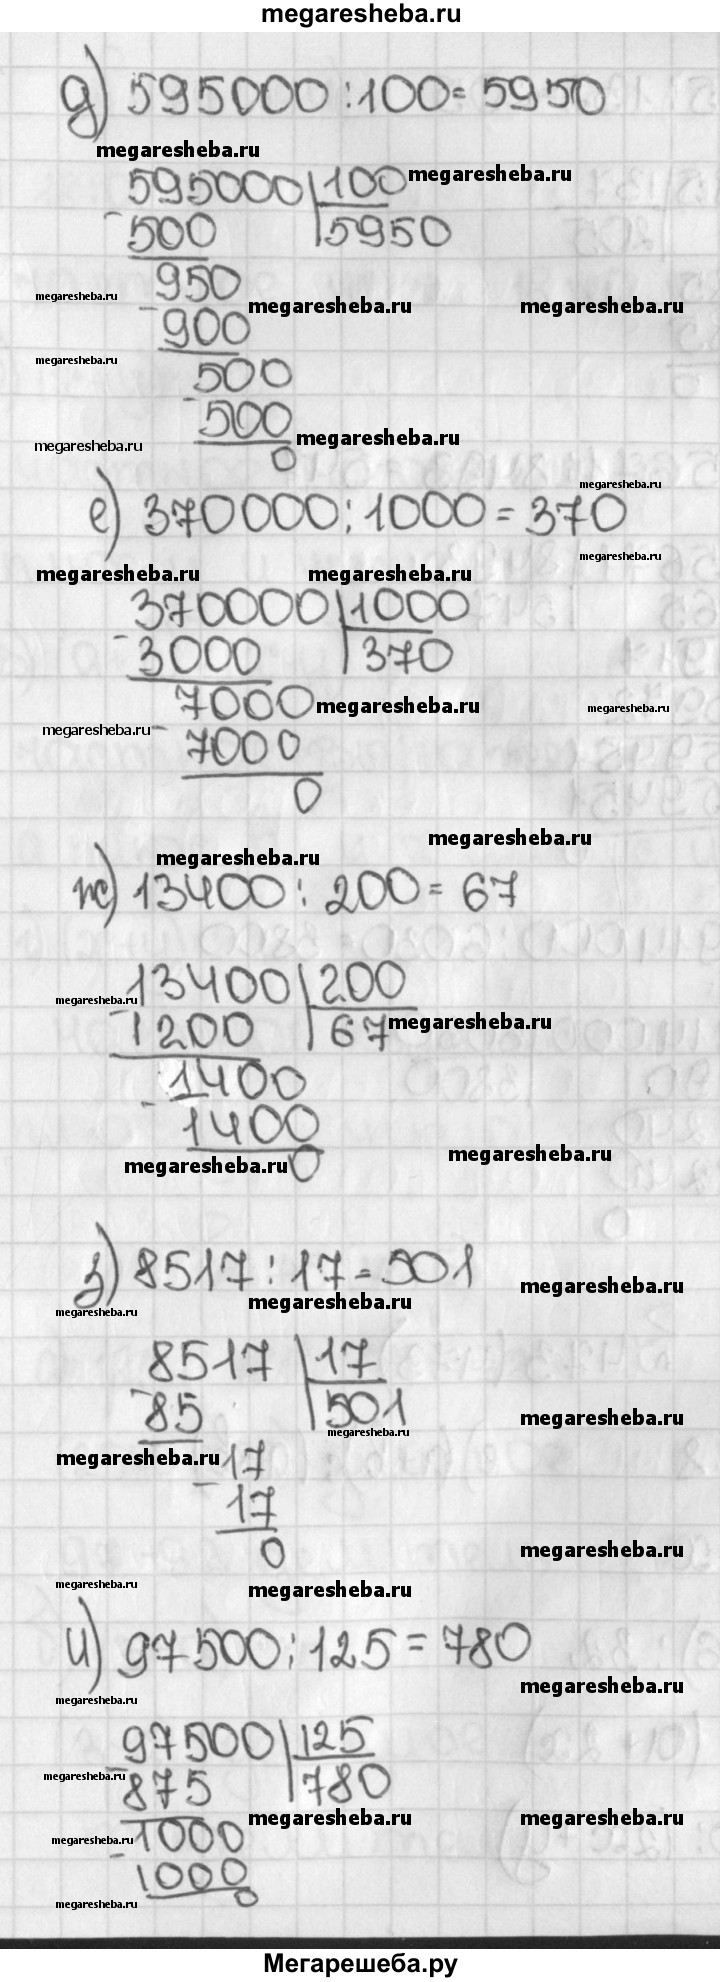 megaresheba.ru
д) 595000 : 100 = 5950
megaresheba.ru
595000 | 100 megaresheba.ru
- 500 | 5950
950
megaresheba.ru megaresheba.ru megaresheba.ru
- 900
megaresheba.ru
500
- 500 megaresheba.ru
megaresheba.ru 0
megaresheba.ru
е) 370000 : 1000 = 370
megaresheba.ru
megaresheba.ru megaresheba.ru
370000 | 1000
- 3000 | 370
7000 megaresheba.ru megaresheba.ru
megaresheba.ru - 7000
0
megaresheba.ru
megaresheba.ru
ж) 13400 : 200 = 67
13400 | 200
megaresheba.ru
- 1200 | 67 megaresheba.ru
1400
- 1400
megaresheba.ru 0 megaresheba.ru
з) 8517 : 17 = 501
megaresheba.ru
megaresheba.ru megaresheba.ru
8517 | 17
- 85 | 501 megaresheba.ru
megaresheba.ru
megaresheba.ru 17
- 17
0 megaresheba.ru
megaresheba.ru megaresheba.ru
и) 97500 : 125 = 780
megaresheba.ru
megaresheba.ru
97500 | 125
megaresheba.ru - 875 | 780
megaresheba.ru megaresheba.ru
megaresheba.ru 1000
- 1000
megaresheba.ru 0
Мегарешеба.ру